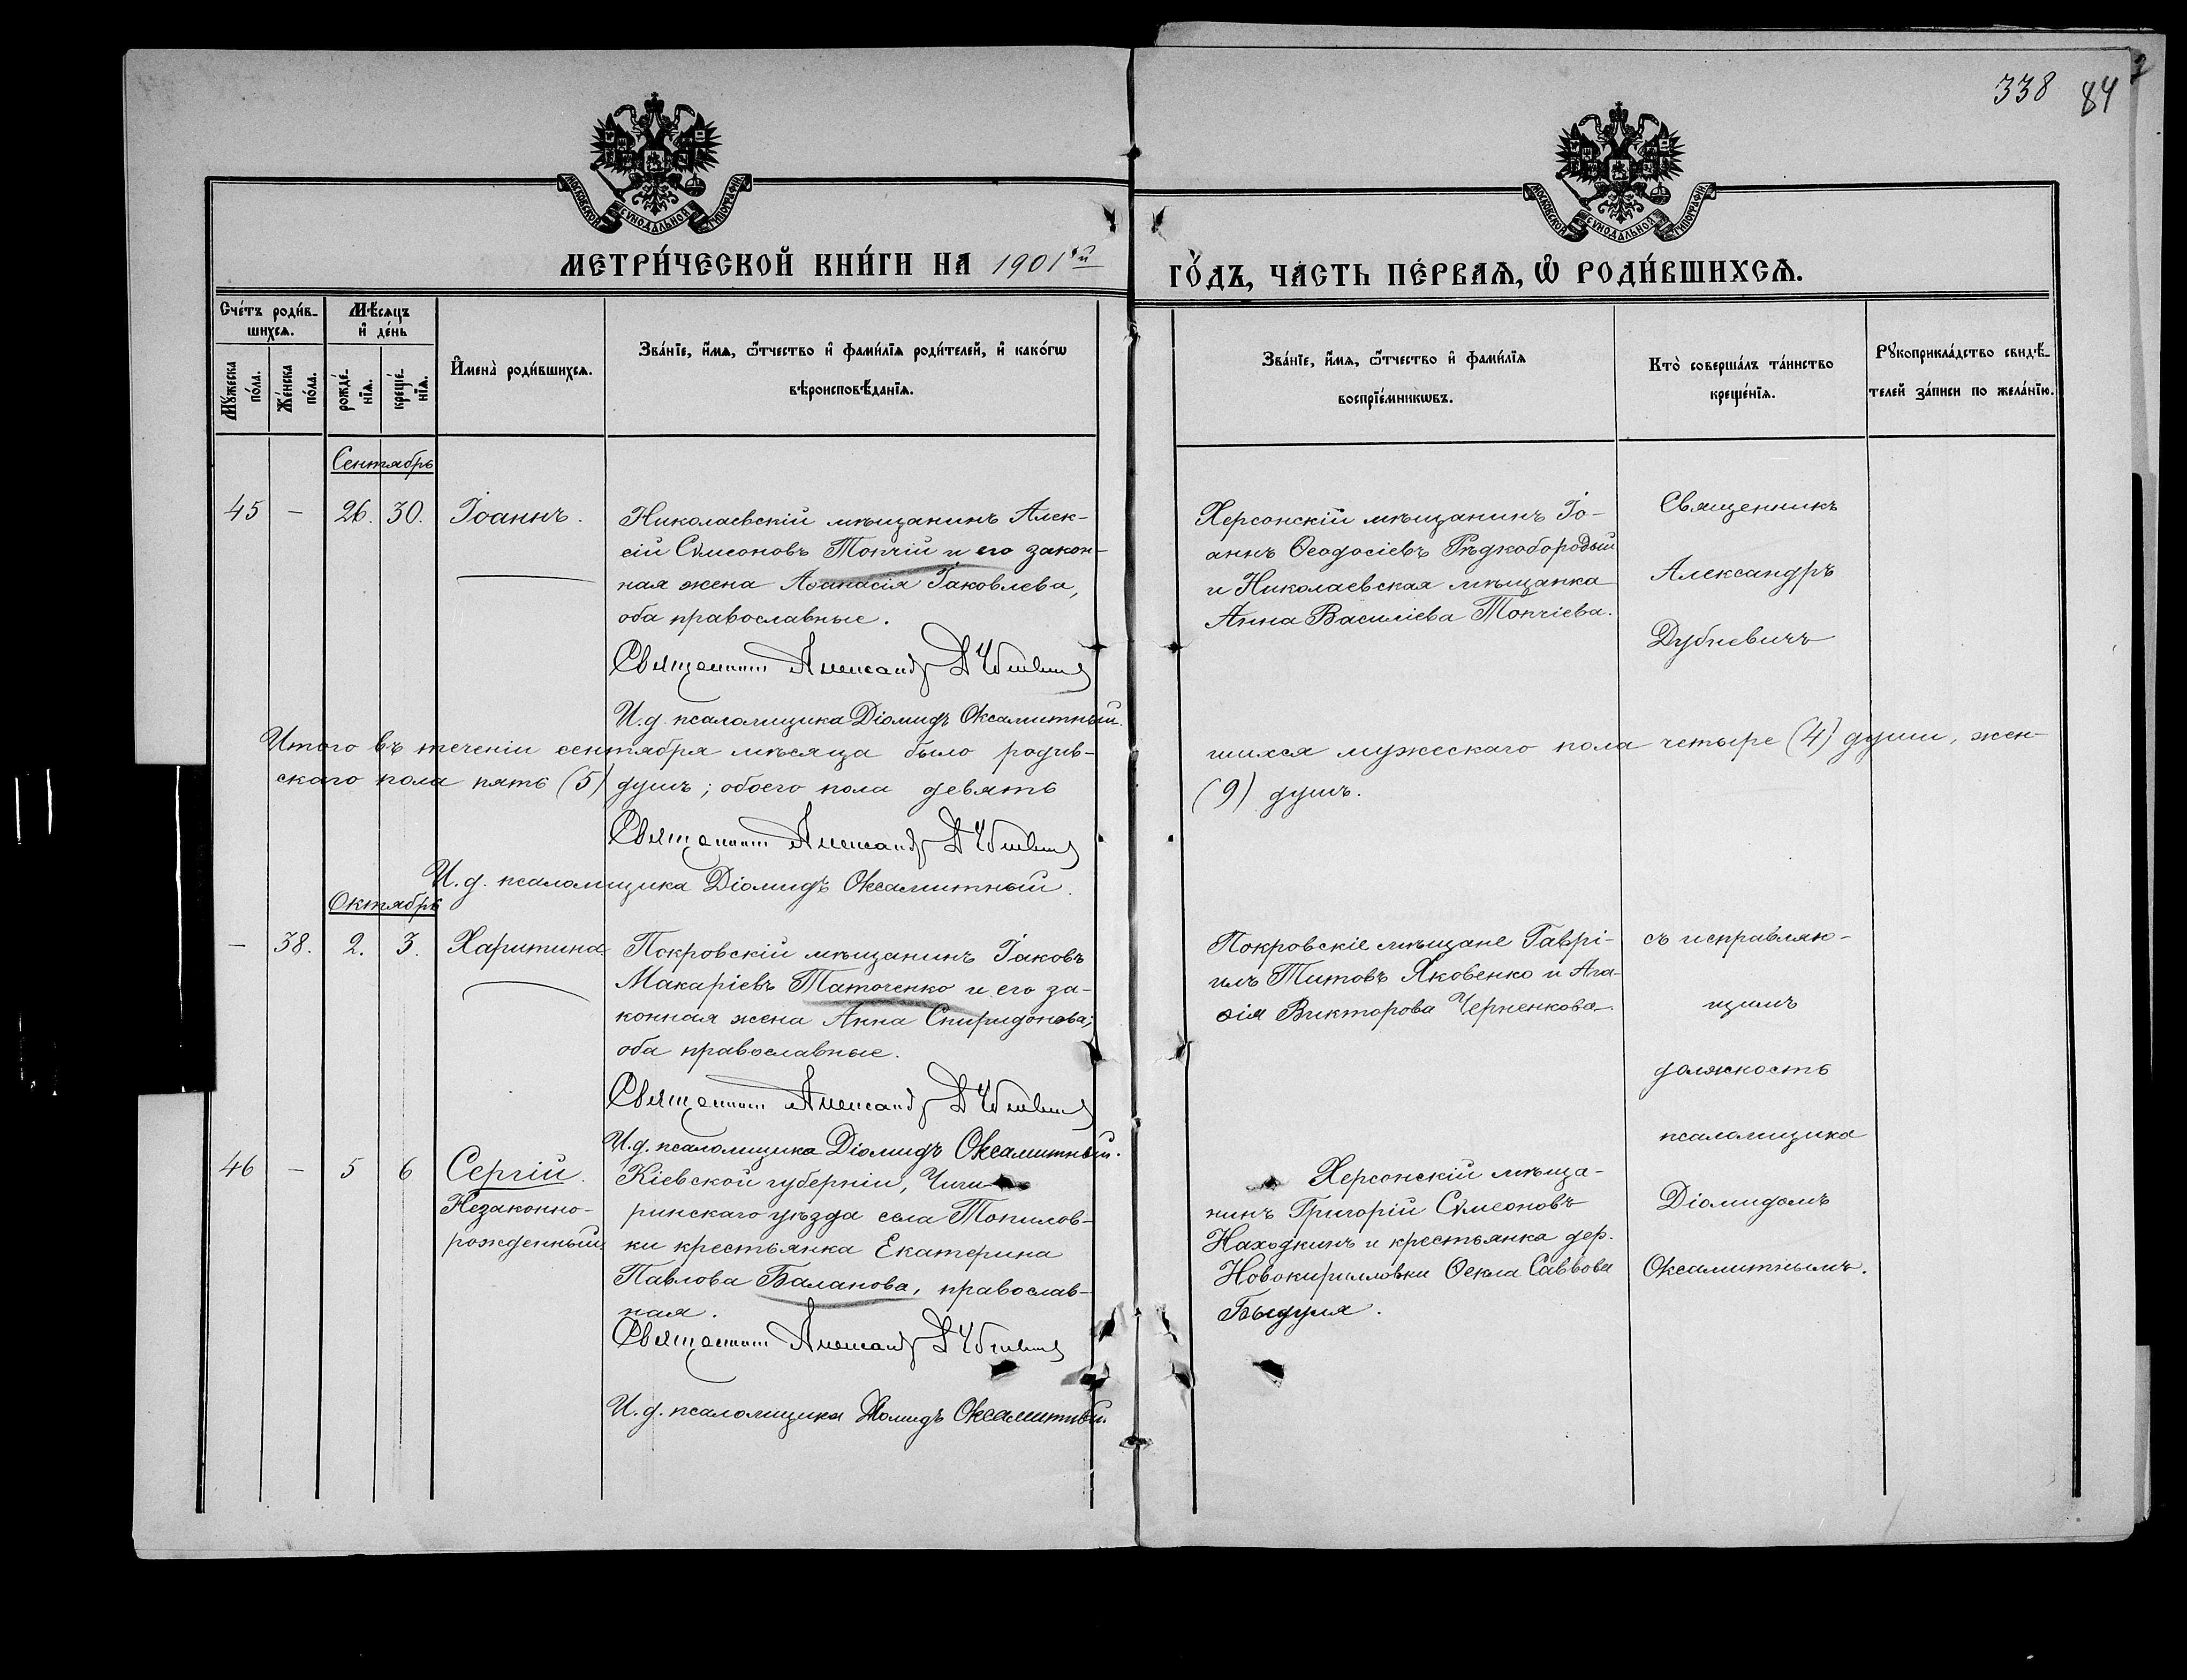 338 84
МОСКОВСКОЙ СѴНОДАЛЬНОЙ ТИПОГРАФІИ
МОСКОВСКОЙ СѴНОДАЛЬНОЙ ТИПОГРАФІИ
МЕТРИ́ЧЕСКОЙ КНИ́ГИ НА 1901ый
ГО́ДЪ, ЧА́СТЬ ПЕ́РВАѦ, Ѡ҆ РОДИ́ВШИХСѦ.
Сче́тъ роди́в-
шихсѧ.
Мꙋ́жеска
по́ла.
Же́нска
по́ла.
Мѣ́сѧцъ
и҆ де́нь
рожде́-
нїѧ.
креще́-
нїѧ.
И҆мена̀ роди́вшихсѧ.
Зва́нїе, и҆́мѧ, ѻ҆́тчество и҆ фами́лїѧ роди́телей, и҆ како́гѡ
вѣроисповѣ́данїѧ.
Зва́нїе, и҆́мѧ, ѻ҆́тчество и҆ фами́лїѧ
воспрїе́мникѡвъ.
Кто̀ соверша́лъ та́инство
креще́нїѧ.
Рꙋкоприкла́дство свидѣ́-
телей за́писи по жела́нїю.
Сентябрь
45 — 26. 30. Іоаннъ.
Николаевскій мѣщанинъ Алек-
сій Сѵмеоновъ Топчій и его закон-
ная жена Аѳанасія Іаковлева,
оба православные.
Священникъ Александръ Дубневичъ
И.д. псаломщика Діомидъ Оксамитный.
Херсонскій мѣщанинъ Іо-
аннъ Ѳеодосіевъ Рѣдкобородый
и Николаевская мѣщанка
Анна Василіева Топчіева.
Священникъ
Александръ
Дубневичъ
Итого въ теченіи сентября мѣсяца было родив-
шихся мужескаго пола четыре (4) души, жен-
скаго пола пять (5) душъ; обоего пола девять
(9) душъ.
Священникъ Александръ Дубневичъ
И.д. псаломщика Діомидъ Оксамитный.
Октябрь
— 38. 2. 3. Харитина
Покровскій мѣщанинъ Іаковъ
Макаріевъ Таточенко и его за-
конная жена Анна Спиридонова;
оба православные.
Священникъ Александръ Дубневичъ
И.д. псаломщика Діомидъ Оксамитный.
Покровскіе мѣщане Гаврі-
илъ Титовъ Яковенко и Ага-
ѳія Викторова Черненкова.
съ исправляю-
щимъ
должность
псаломщика
Діомидомъ
Оксамитнымъ.
46 — 5 6 Сергій.
Незаконно-
рожденный
Кіевской губерніи, Чиги-
ринскаго уѣзда села Топилов-
ки крестьянка Екатерина
Павлова Баланова, православ-
ная.
Священникъ Александръ Дубневичъ
И.д. псаломщика Діомидъ Оксамитный.
Херсонскій мѣща-
нинъ Григорій Сѵмеоновъ
Находкинъ и крестьянка дер.
Новокирилловки Ѳекла Саввова
Быдуля.